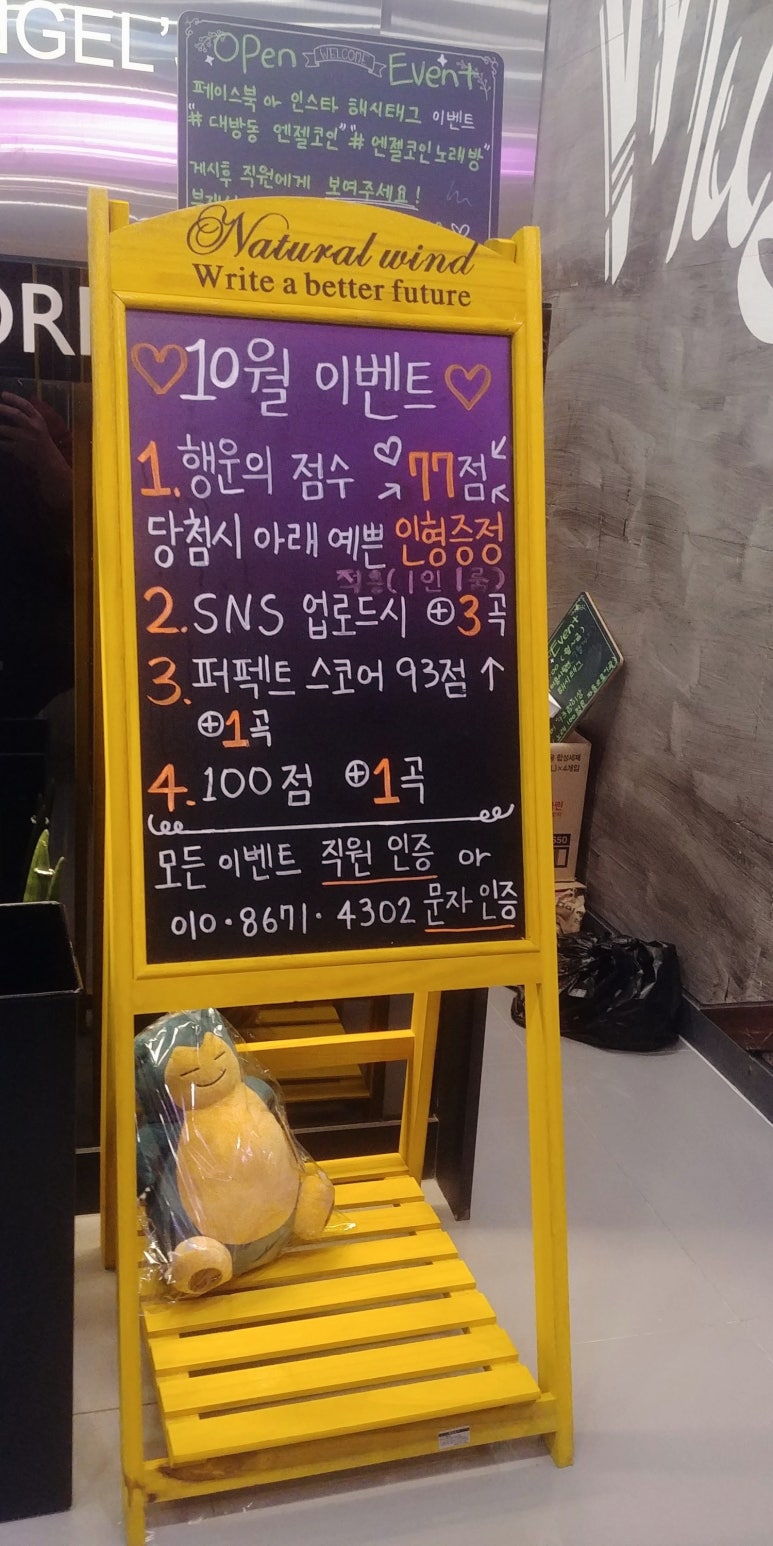 NGEL'S
OPen WELCOME Event
페이스북 아 인스타 해시태그 이벤트
"# 대방동 엔젤코인" "# 엔젤코인노래방"
게시후 직원에게 보여주세요!
Natural wind
Write a better future
♡10월 이벤트♡
1. 행운의 점수 ♡ 77점
당첨시 아래 예쁜 인형증정
(1인 1룸)
2. SNS 업로드시 ⊕3곡
3. 퍼펙트 스코어 93점 ↑
⊕1곡
4. 100점 ⊕1곡
모든 이벤트 직원 인증 or
010·8671·4302 문자 인증
Event